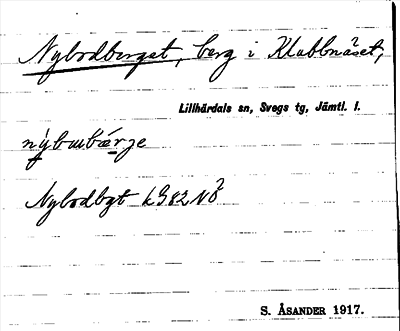 Nybodberget, berg i Klabbnäset,
Lillhärdals sn, Svegs tg, Jämtl. l.
Nybodbgt kG82NÖ
S. ÅSANDER 1917.